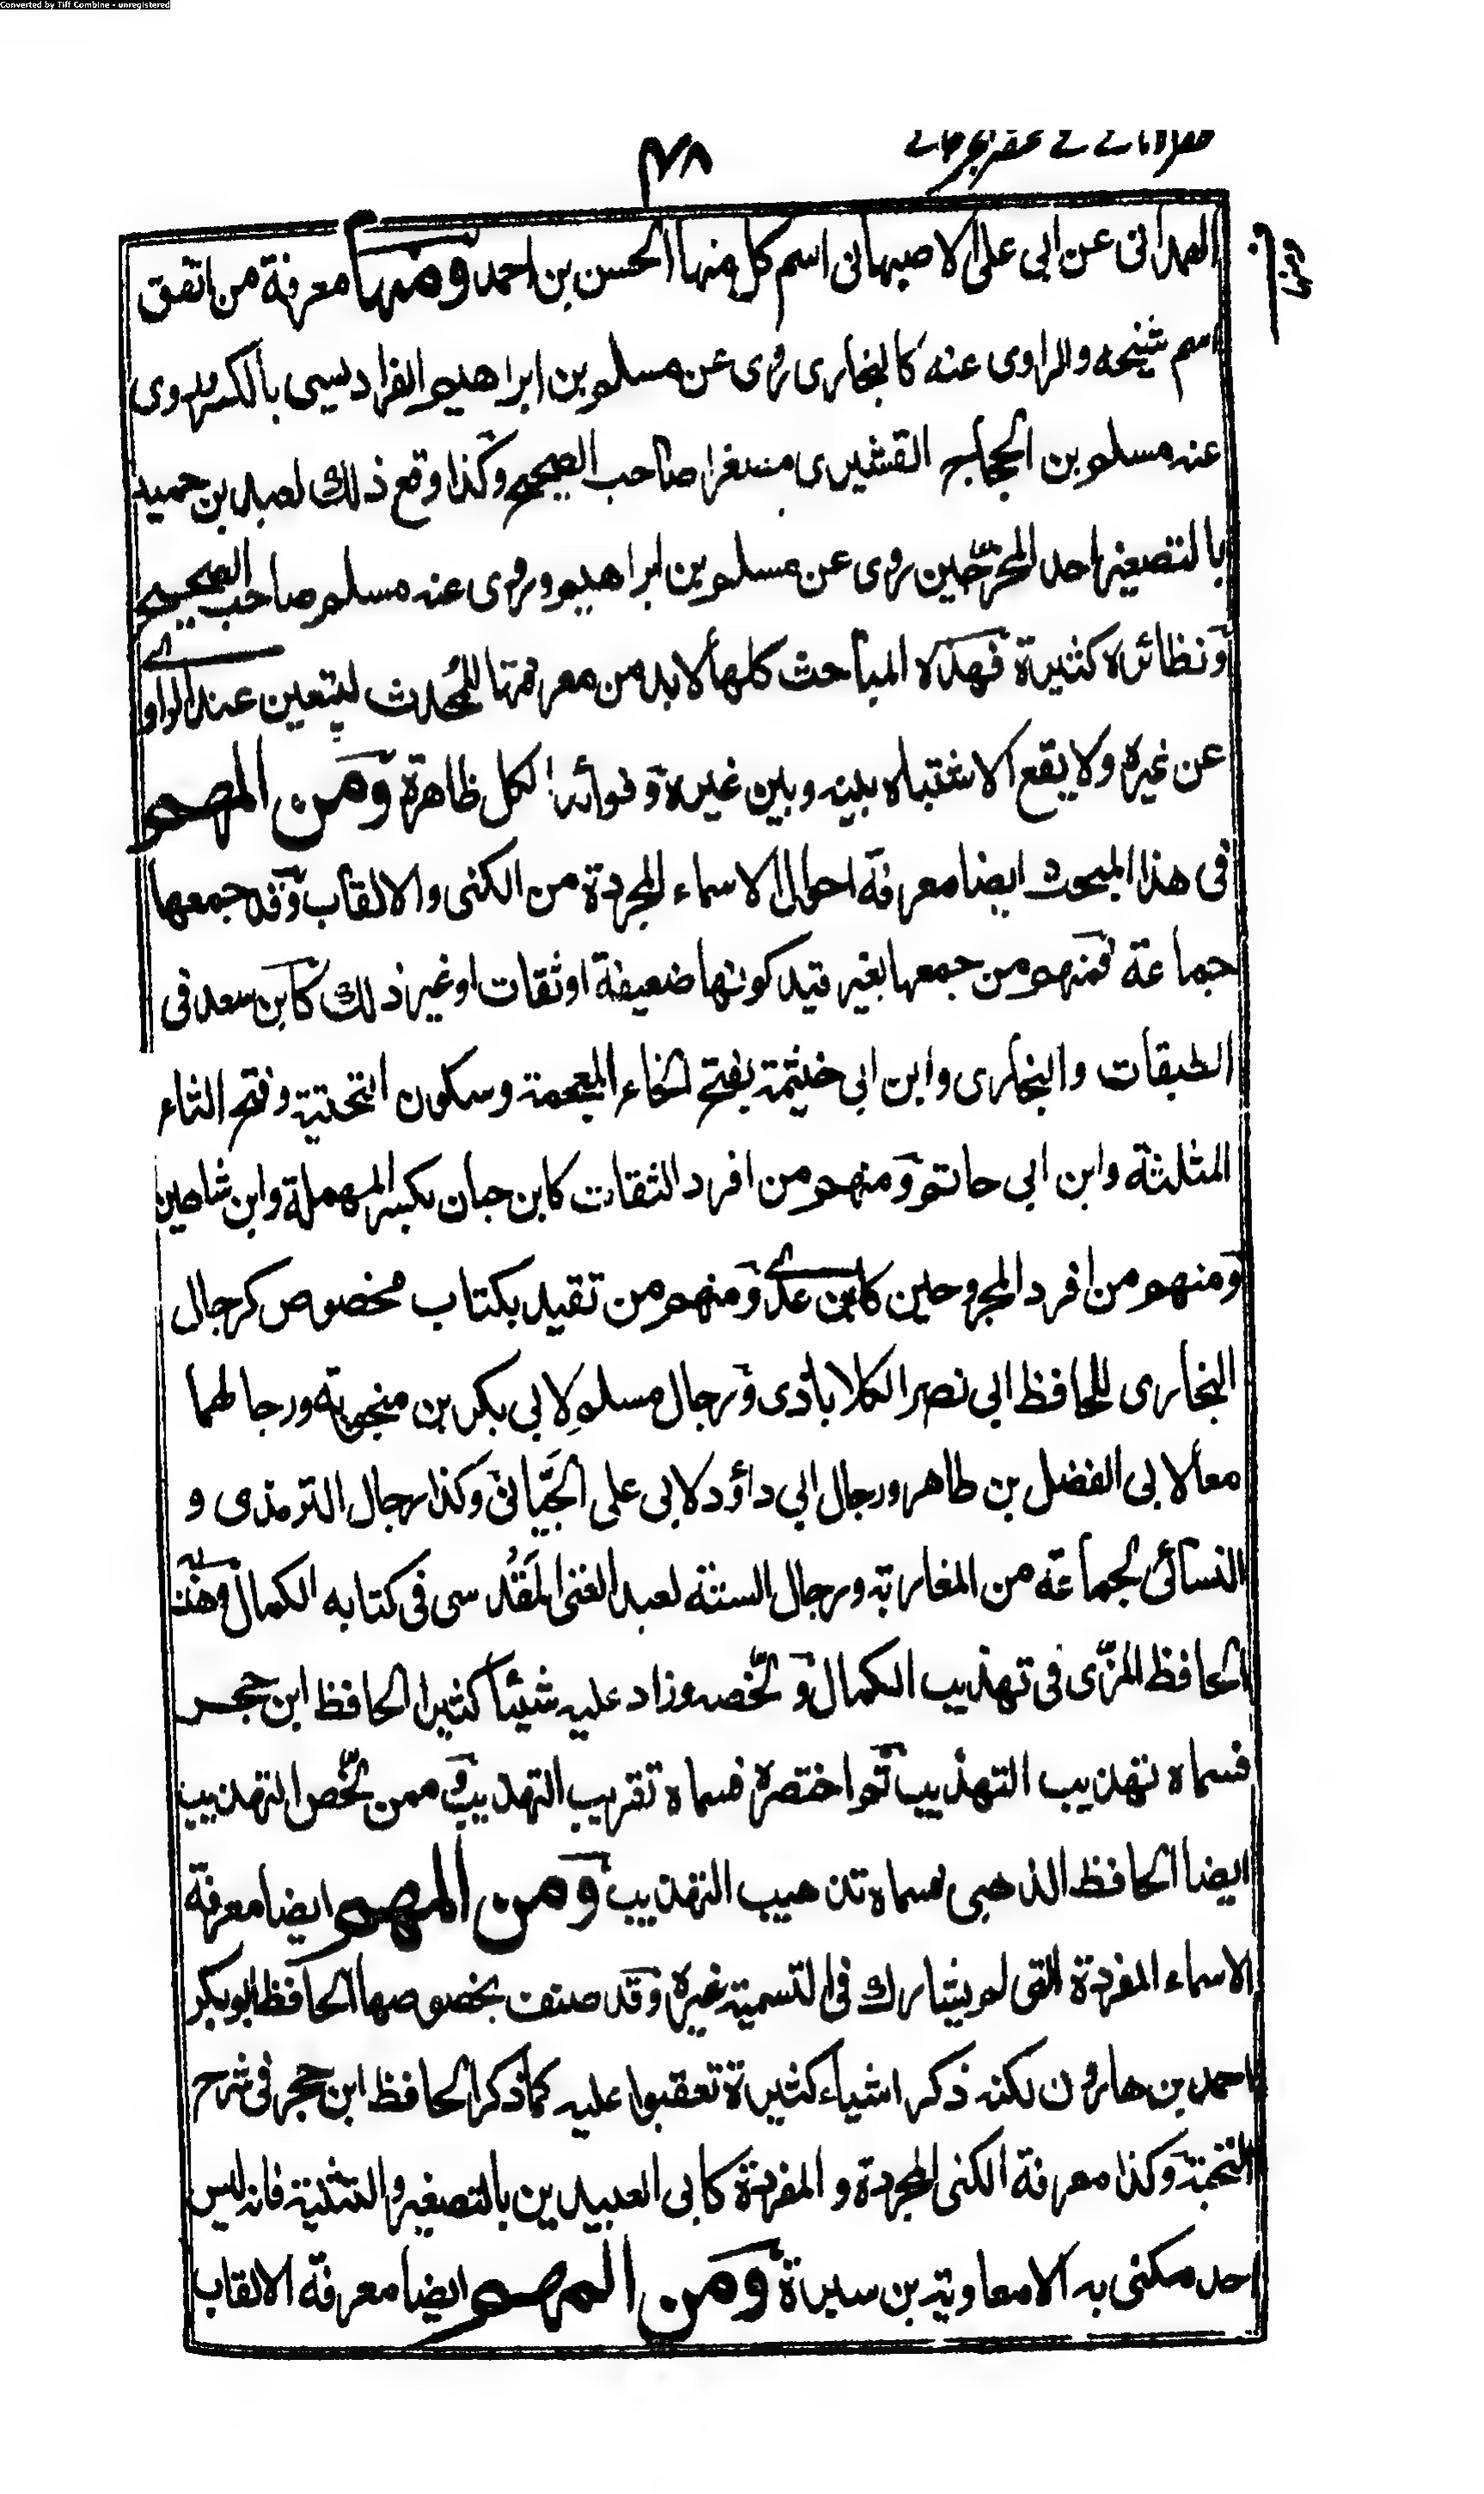 Converted by Tiff Combine - unregistered
۴۸
الهمدانی عن ابی علی الاصبهانی اسم کل منهما الحسن بن احمد ومنها معرفة من اتفق
اسم شیخه والراوی عنه کالبخاری روی عن مسلم بن ابراهیم الفرادیسی بالکسر وروی
عنه مسلم بن الحجاج القشیری مصغرا صاحب الصحیح وکذا وقع ذلك لعبد بن حمید
بالتصغیر احد المخرّجین روی عن مسلم بن ابراهیم وروی عنه مسلم صاحب الصحیح
ونظائره کثیرة فهذه المباحث کلها لابد من معرفتها للمحدث لیتعین عنده الراوی
عن غیره ولا یقع الاشتباه بینه وبین غیره وفوائد الکل ظاهرة ومن المهم
فی هذا المبحث ایضا معرفة احوال الاسماء المجردة من الکنی والالقاب وقد جمعها
جماعة فمنهم من جمعها بغیر قید کونها ضعیفة او ثقات او غیر ذلك کابن سعد فی
الطبقات والبخاری وابن ابی خیثمة بفتح الخاء المعجمة وسکون التحتیة وفتح الثاء
المثلثة وابن ابی حاتم ومنهم من افرد الثقات کابن حبان بکسر المهملة وابن شاهین
ومنهم من افرد المجروحین کابن عدی ومنهم من تقید بکتاب مخصوص کرجال
البخاری للحافظ ابی نصر الکلاباذی ورجال مسلم لابی بکر بن منجویة ورجالهما
معا لابی الفضل بن طاهر ورجال ابی داؤد لابی علی الجَیّانی وکذا رجال الترمذی و
النسائی لجماعة من المغاربة ورجال الستة لعبد الغنی المَقْدسی فی کتابه الکمال وهذبه
الحافظ المزّی فی تهذیب الکمال ولخّصه وزاد علیه شیئا کثیرا الحافظ ابن حجر
فسماه تهذیب التهذیب ثم اختصره فسماه تقریب التهذیب وممن لخّص التهذیب
ایضا الحافظ الذهبی سماه تذهیب التهذیب ومن المهم ایضا معرفة
الاسماء المفردة التی لم یشارك فی التسمیة غیره وقد صنف بخصوصها الحافظ ابو بکر
احمد بن هارون لکنه ذکر اشیاء کثیرة تعقبوا علیه کما ذکر الحافظ ابن حجر فی شرح
النخبة وکذا معرفة الکنی المجردة والمفردة کابی العبیدین بالتصغیر والتثنیة فانه لیس
احد مکنی به الا معاویة بن سبرة ومن المهم ایضا معرفة الالقاب